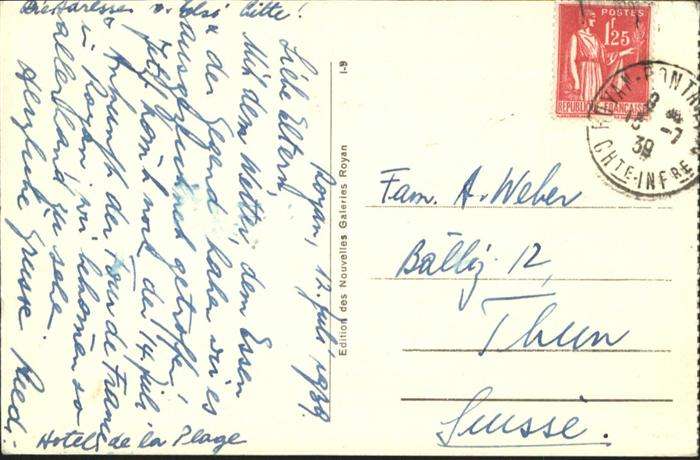 Die Adresse v. Elsi bitte!
Royan, 12. Juli 1939.
Liebe Eltern,
Mit dem Wetter, dem Essen
& der Gegend haben wir es
ausgezeichnet getroffen,
Jetzt kommt noch der 14. Juli
& Ankunft der Tour de France
in Royan, wir bekommen so
allerhand zu sehen.
Herzliche Grüsse Ruedi.
Hotel de la Plage
Edition des Nouvelles Galeries Royan
I-9
POSTES
1f25
REPUBLIQUE FRANÇAISE
ROYAN-PONTAI
13 -7
39
CHTE-INFRE
Fam. A. Weber
Bälliz 12,
Thun
Suisse.